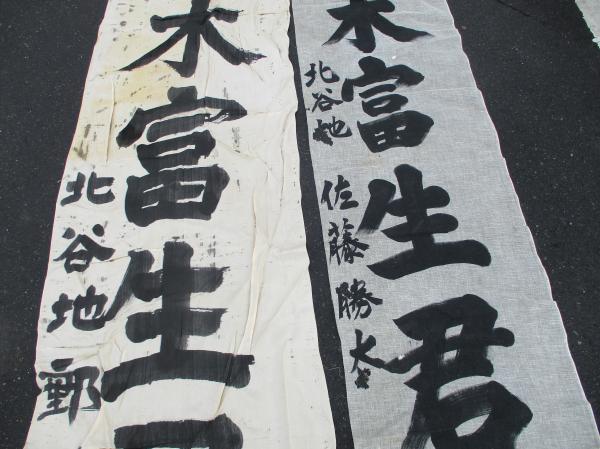 木富生君
北谷地
佐藤勝太
木富生
北谷地郵